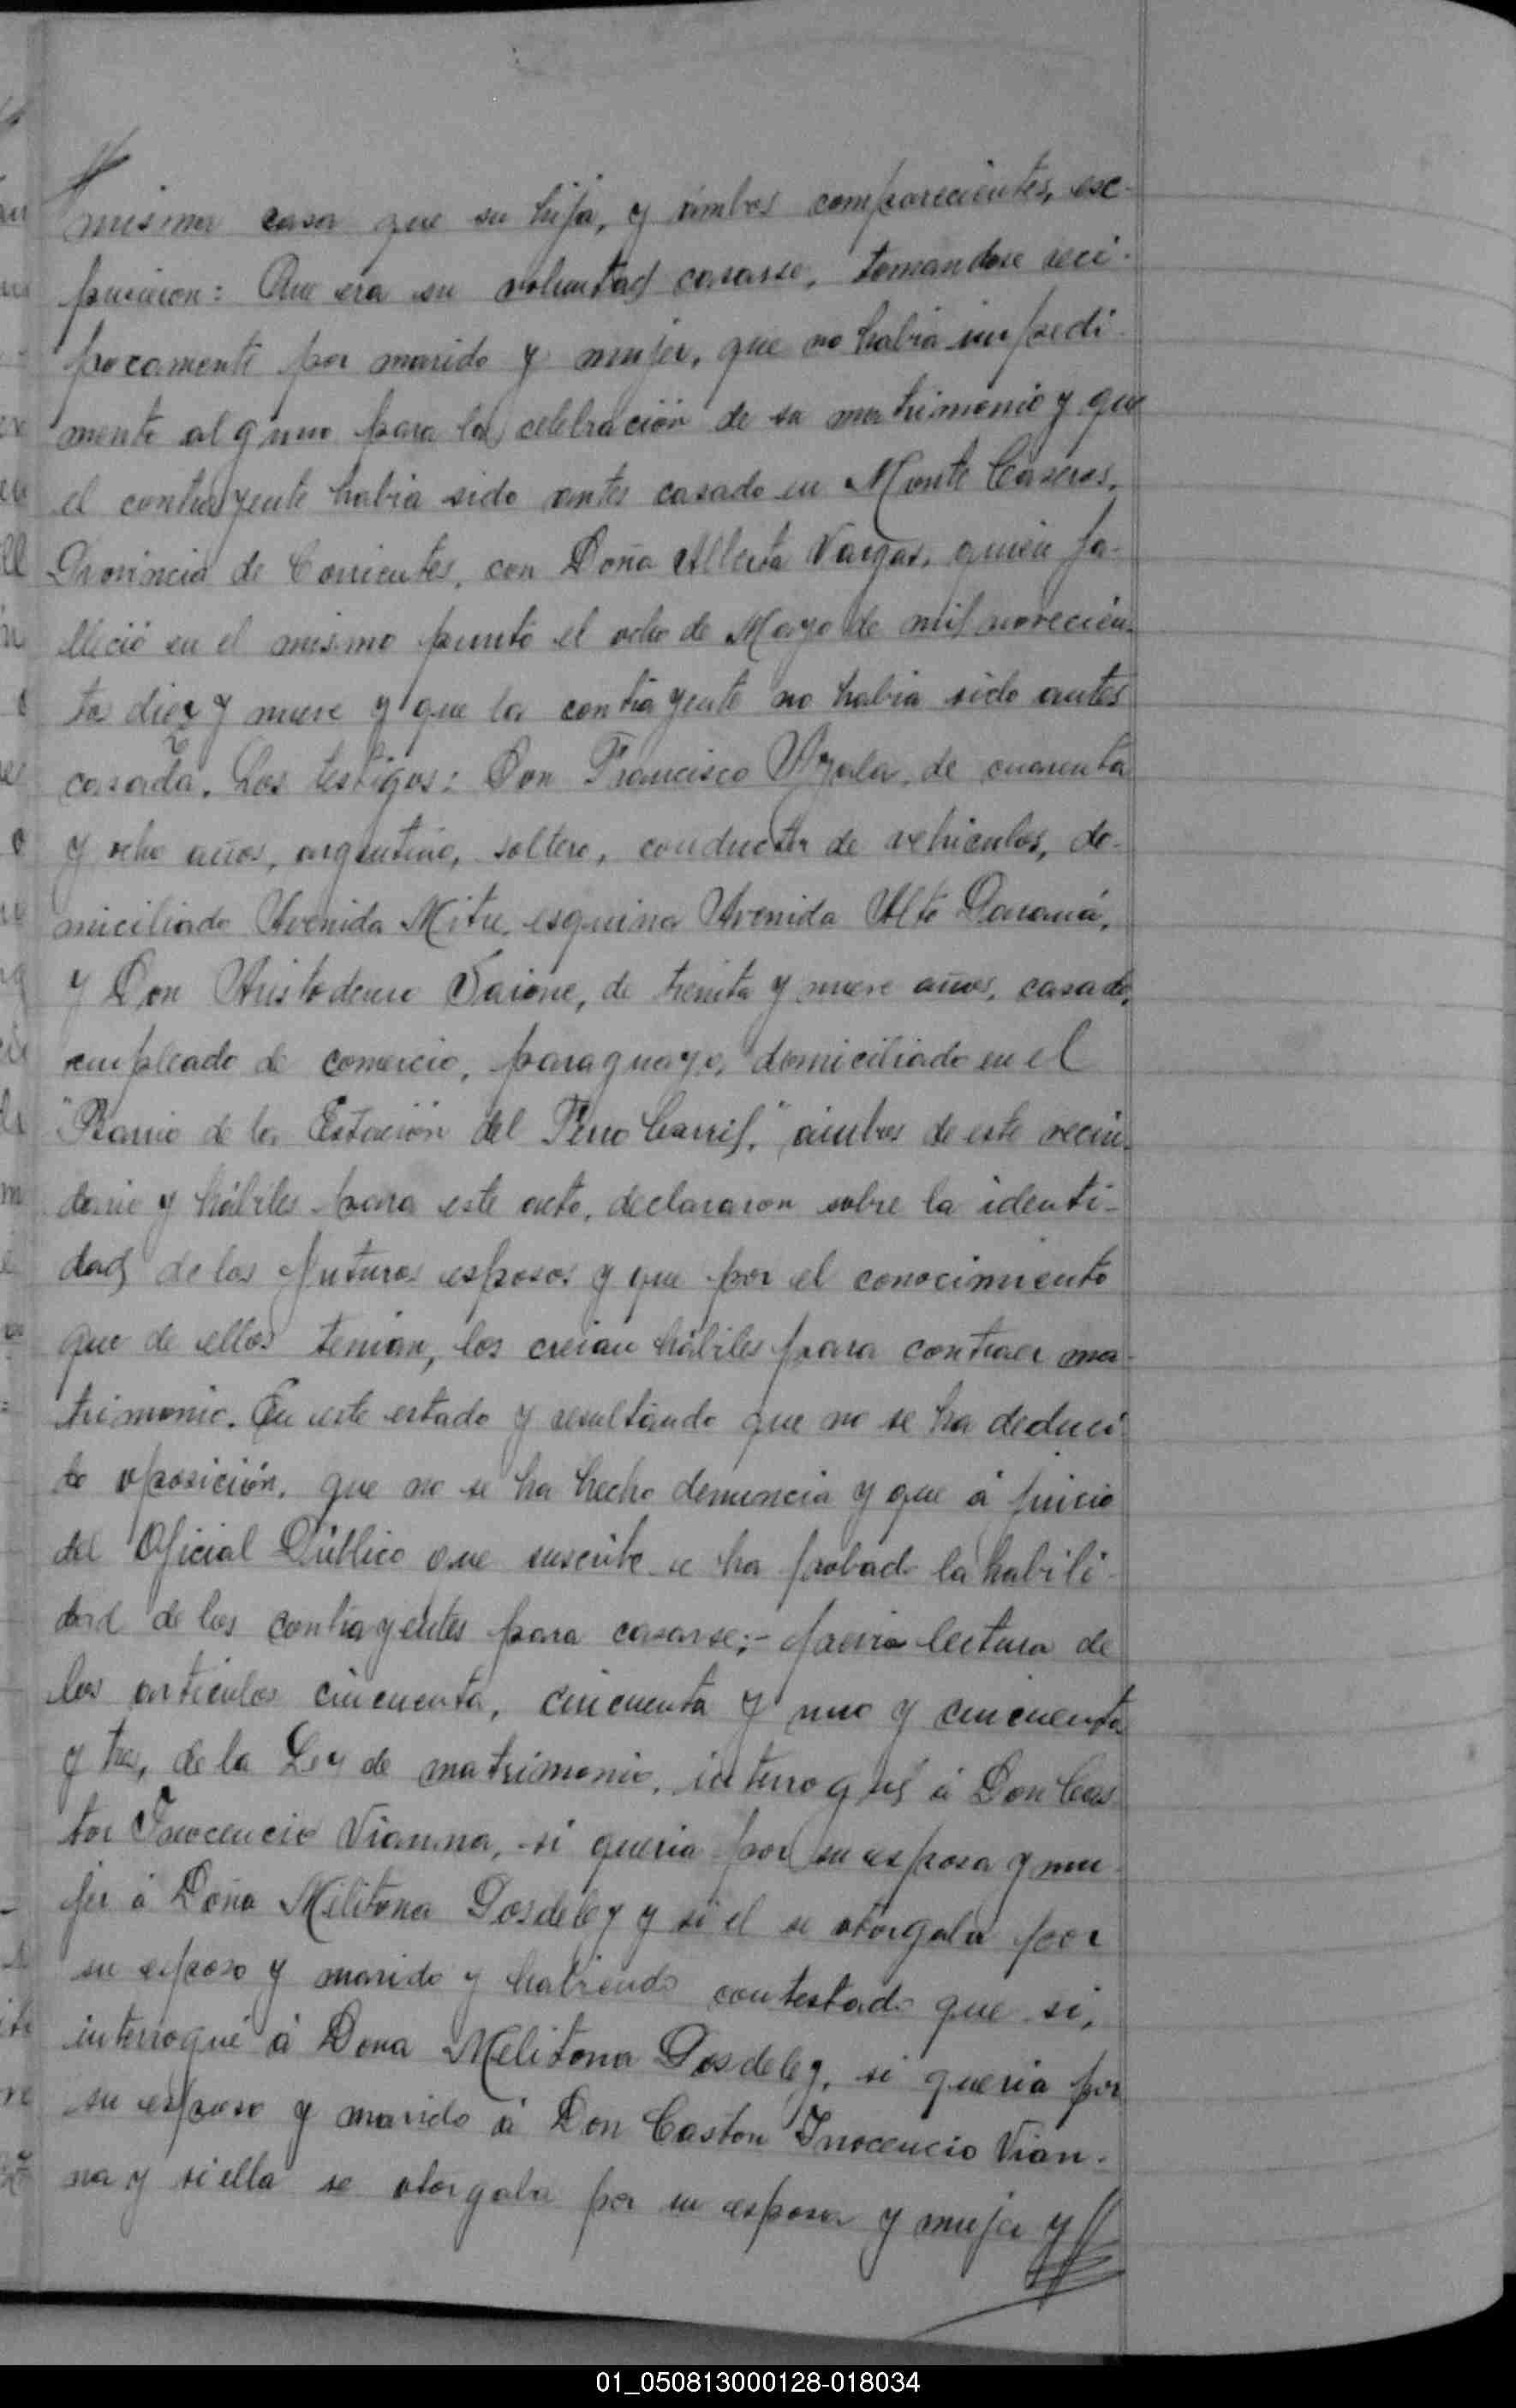 misma casa que su hija, y ámbos comparecientes, esc-
pusieron: Que era su voluntad casarse, tomandose reci-
procamente por marido y mujer, que no habia impedi-
mento alguno para la celebración de su matrimonio y que
el contrayente habia sido antes casado en Monte Caseros,
Provincia de Corrientes, con Doña Alberta Vargas, quien fa-
lleció en el mismo punto el ocho de Mayo de mil novecien-
tos diez y nueve y que la contrayente no habia sido antes
casada. Los testigos: Don Francisco Ayala, de cuarenta
y ocho años, argentino, soltero, conductor de vehiculos, do-
miciliado Avenida Mitre, esquina Avenida Alto Paraná,
y Don Aristodemo Saione, de treinta y nueve años, casado,
empleado de comercio, paraguayo, domiciliado en el
"Barrio de la Estación del Ferro Carril," ámbos de este vecin-
dario y hábiles para este acto, declararon sobre la identi-
dad de los futuros esposos y que por el conocimiento
que de ellos tenian, los creian hábiles para contraer ma-
trimonio. En este estado y resultando que no se ha deduci-
do oposición, que no se ha hecho denuncia y que á juicio
del Oficial Público que suscribe se ha probado la habili-
dad de los contrayentes para casarse;- previa lectura de
los articulos cincuenta, cincuenta y uno y cincuenta
y tres, de la Ley de matrimonio, interrogué á Don Cas-
tor Inocencio Vianna, si queria por su esposa y mu-
jer á Doña Melitona Posdeley y si el se otorgaba por
su esposo y marido y habiendo contestado que si,
interrogué á Dona Melitona Posdeley, si queria por
su esposo y marido á Don Castor Inocencio Vian-
na y si ella se otorgaba por su esposa y mujer y
01_050813000128-018034